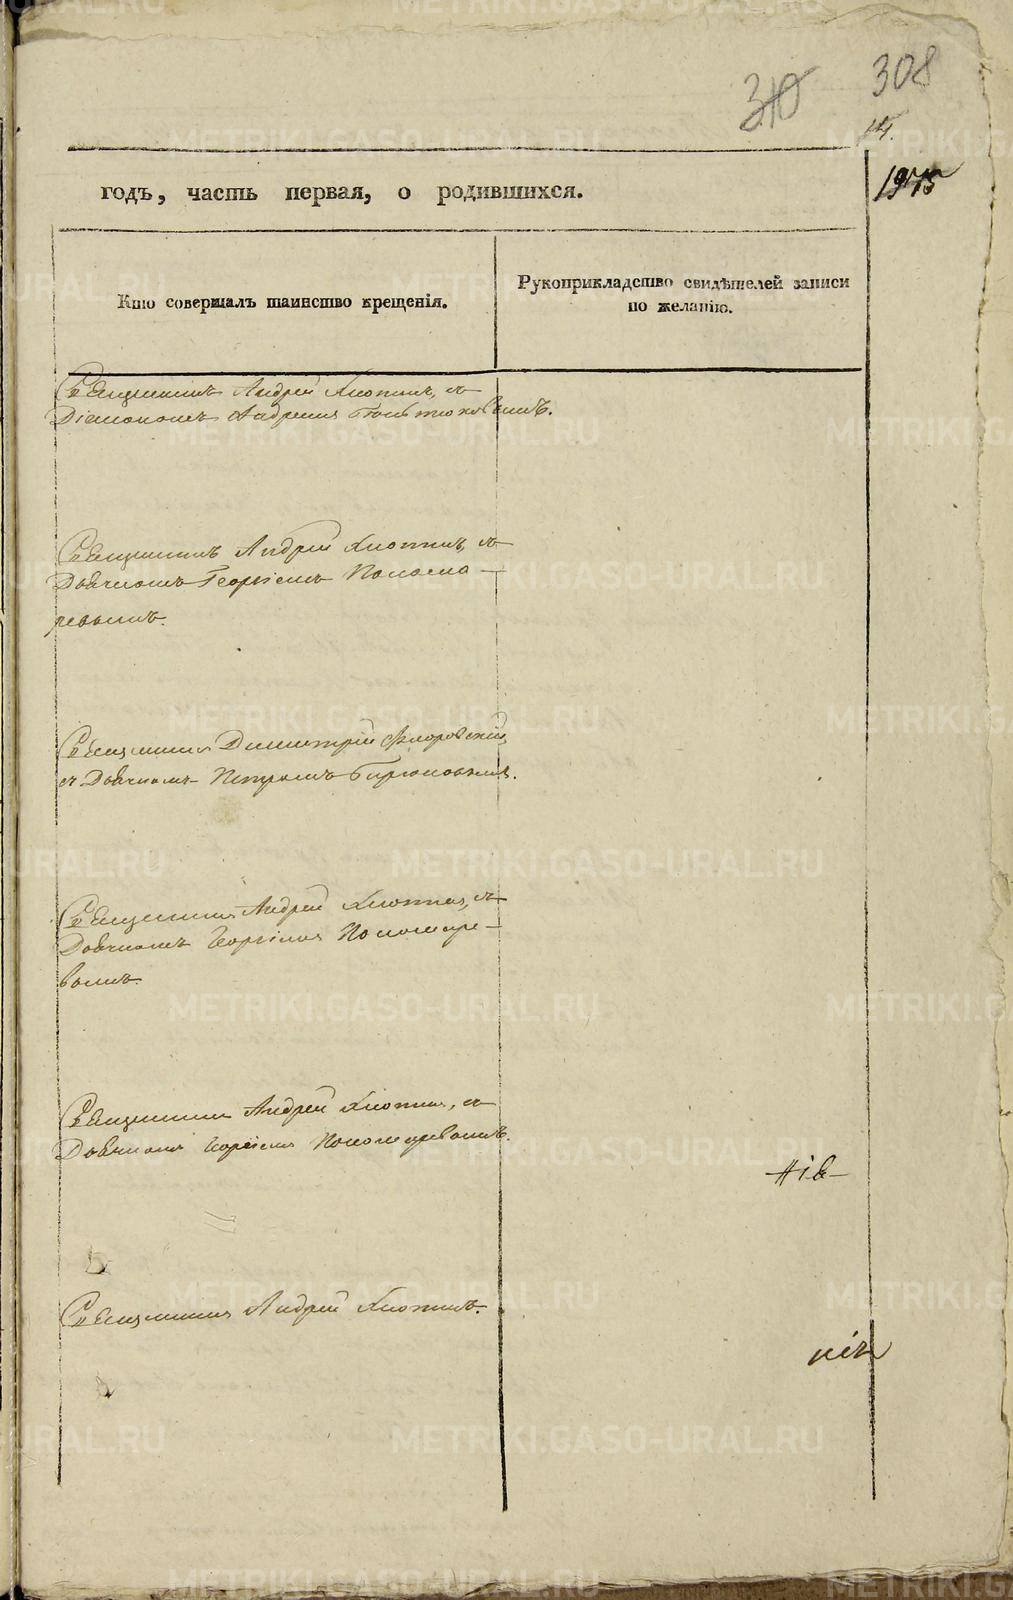 310 308
14.
годъ, часть первая, о родившихся.
Кто совершалъ таинство крещенія.
Рукоприкладство свидѣтелей записи
по желанію.
Священникъ Андрей Хлопинъ, съ
Діакономъ Андреемъ
Священникъ Андрей Хлопинъ, съ
Дьячкомъ Георгіемъ Понома-
ревымъ.
Священникъ Димитрій Флоровскій,
съ Дьячкомъ Петромъ Бирюковымъ.
Священникъ Андрей Хлопинъ, съ
Дьячкомъ Георгіемъ Пономаре-
вымъ.
Священникъ Андрей Хлопинъ, съ
Дьячкомъ Георгіемъ Пономаревымъ.
Священникъ Андрей Хлопинъ.
METRIKI.GASO-URAL.RU